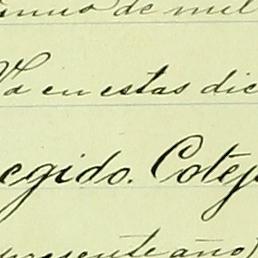 de mil
en estas dic
egido. Cotej
presente año